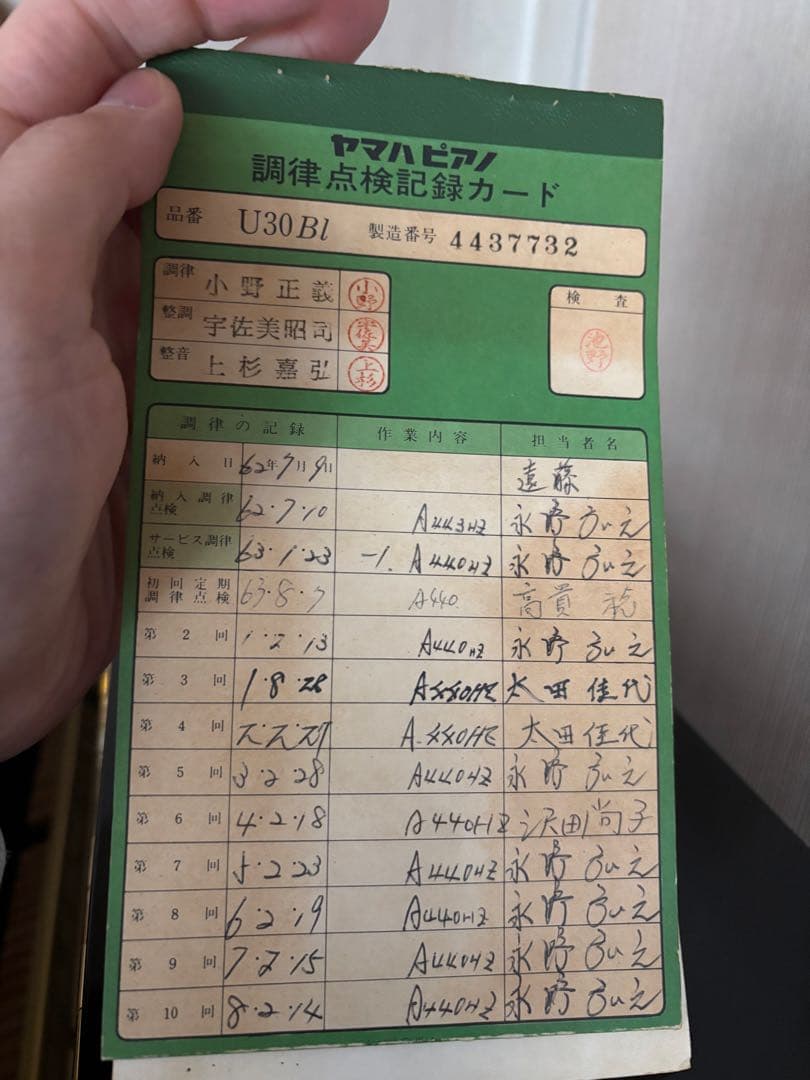 ヤマハピアノ
調律点検記録カード
品番 U30Bl 製造番号 4437732
調律 小野正義 小野
検査
整調 宇佐美昭司 宇佐美
池野
整音 上杉嘉弘 上杉
調律の記録 作業内容 担当者名
納入日 62年7月9日 遠藤
納入調律点検 62.7.10 A443HZ 永野
サービス調律点検 63.1.23 -1. A440HZ 永野
初回定期調律点検 63.8.7 A440. 高貫
第2回 1.2.13 A440HZ 永野
第3回 1.8.28 A440HZ 太田佳代
第4回 A.440HZ 太田佳代
第5回 3.2.28 A440HZ 永野
第6回 4.2.18 A440HZ 沢田尚子
第7回 5.2.23 A440HZ 永野
第8回 6.2.19 A440HZ 永野
第9回 7.2.15 A440HZ 永野
第10回 8.2.14 A440HZ 永野